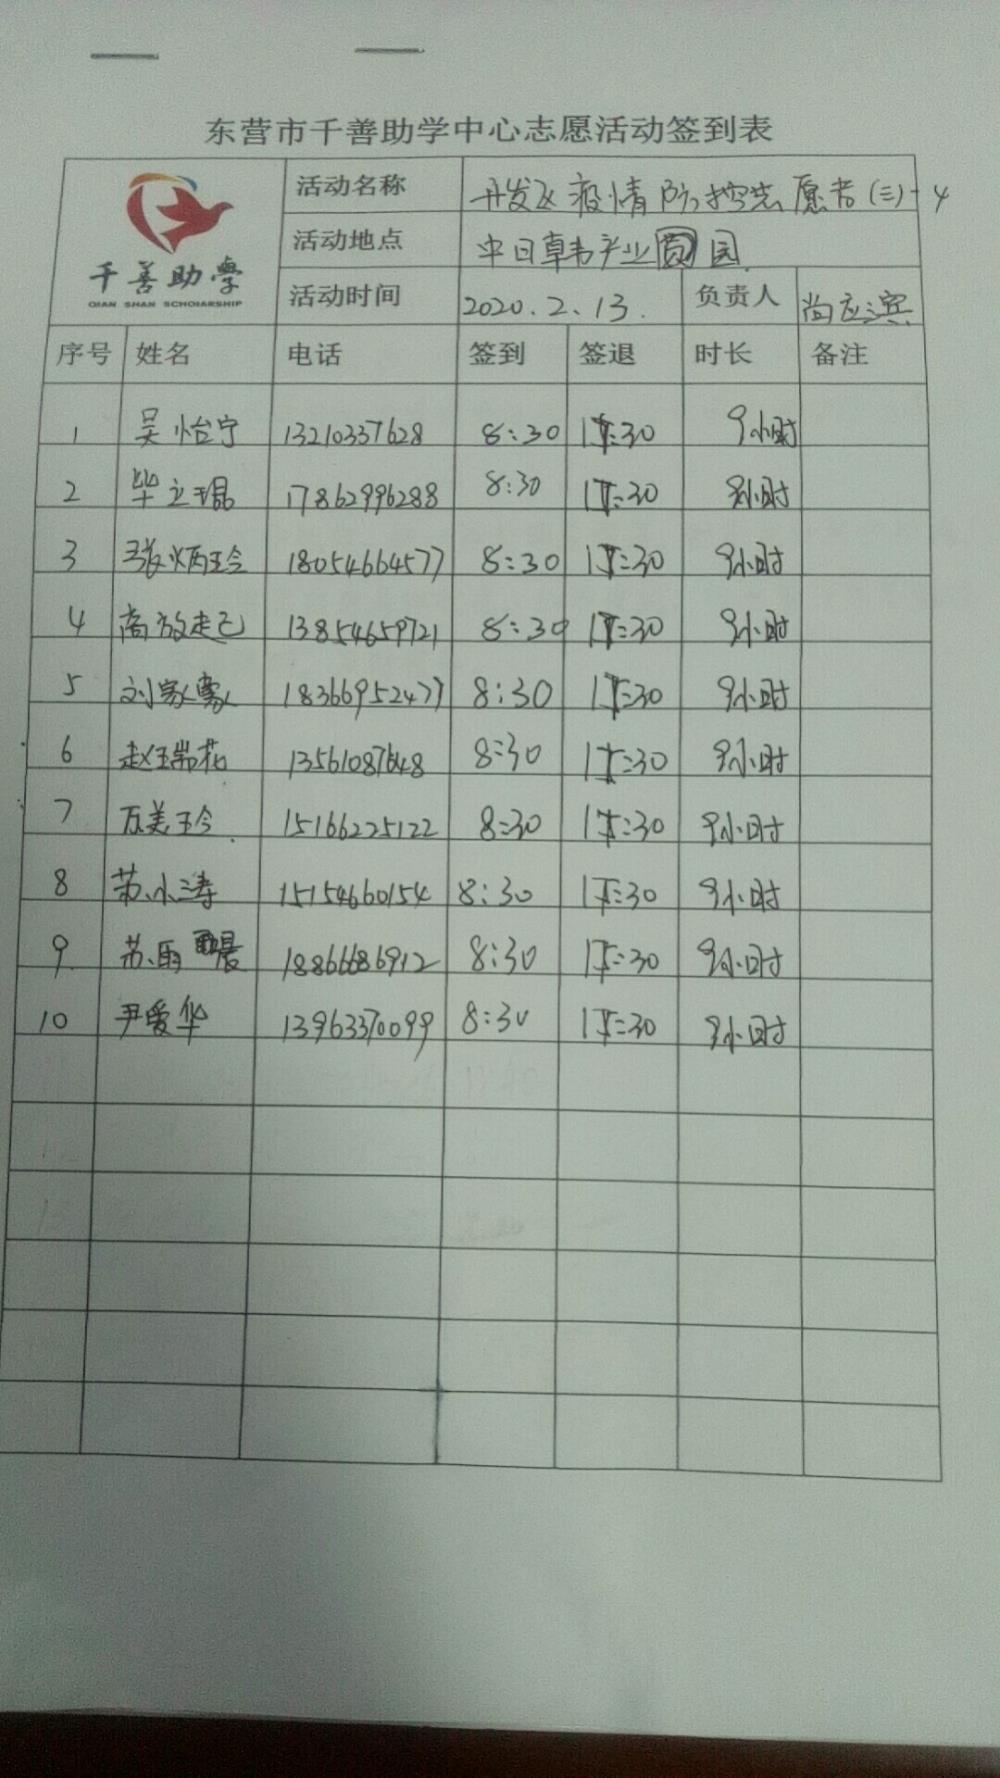 东营市千善助学中心志愿活动签到表
千善助學
QIAN SHAN SCHOLARSHIP
活动名称 开发区疫情防控志愿者(三)-4
活动地点 中日韩产业园
活动时间 2020.2.13. 负责人 尚应滨
序号 姓名 电话 签到 签退 时长 备注
1 吴怡宁 13210337628 8:30 17:30 9小时
2 毕立琨 17862996288 8:30 17:30 9小时
3 张炳玲 18054664577 8:30 17:30 9小时
4 高放起 13854659721 8:30 17:30 9小时
5 刘家豪 18366952477 8:30 17:30 9小时
6 赵瑞花 13561087648 8:30 17:30 9小时
7 万美玲 15166225122 8:30 17:30 9小时
8 苏小涛 15154660154 8:30 17:30 9小时
9 苏雨晨 18866686912 8:30 17:30 9小时
10 尹爱华 13963370099 8:30 17:30 9小时